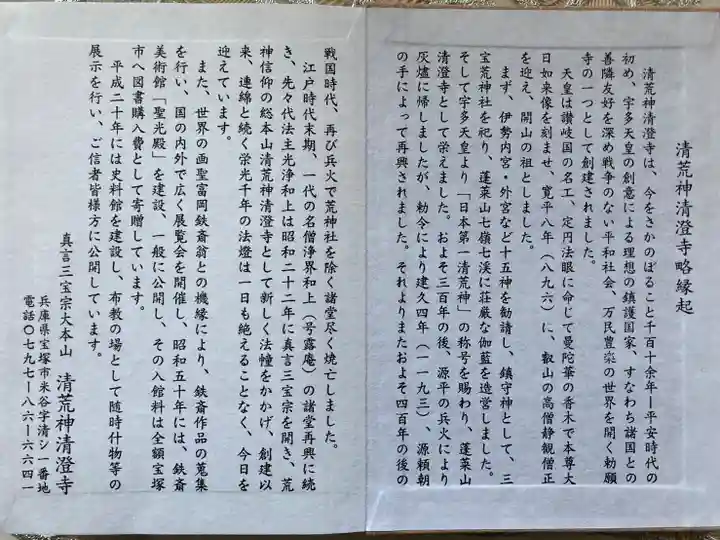 清荒神清澄寺略縁起
清荒神清澄寺は、今をさかのぼること千百十余年―平安時代の
初め、宇多天皇の創意による理想の鎮護国家、すなわち諸国との
善隣友好を深め戦争のない平和社会、万民豊楽の世界を開く勅願
寺の一つとして創建されました。
天皇は讃岐国の名工、定円法眼に命じて曼陀華の香木で本尊大
日如来像を刻ませ、寛平八年（八九六）に、叡山の高僧静観僧正
を迎え、開山の祖としました。
まず、伊勢内宮・外宮など十五神を勧請し、鎮守神として、三
宝荒神社を祀り、蓬莱山七嶺七渓に荘厳な伽藍を造営しました。
そして宇多天皇より「日本第一清荒神」の称号を賜わり、蓬莱山
清澄寺として栄えました。およそ三百年の後、源平の兵火により
灰燼に帰しましたが、勅令により建久四年（一一九三）、源頼朝
の手によって再興されました。それよりまたおよそ四百年の後の
戦国時代、再び兵火で荒神社を除く諸堂尽く焼亡しました。
江戸時代末期、一代の名僧浄界和上（号露庵）の諸堂再興に続
き、先々代法主光浄和上は昭和二十二年に真言三宝宗を開き、荒
神信仰の総本山清荒神清澄寺として新しく法幢をかかげ、創建以
来、連綿と続く栄光千年の法燈は一日も絶えることなく、今日を
迎えています。
また、世界の画聖富岡鉄斎翁との機縁により、鉄斎作品の蒐集
を行い、国の内外で広く展覧会を開催し、昭和五十年には、鉄斎
美術館「聖光殿」を建設、一般に公開し、その入館料は全額宝塚
市へ図書購入費として寄贈しています。
平成二十年には史料館を建設し、布教の場として随時什物等の
展示を行い、ご信者皆様方に公開しています。
真言三宝宗大本山 清荒神清澄寺
兵庫県宝塚市米谷字清シ一番地
電話〇七九七―八六―六六四一